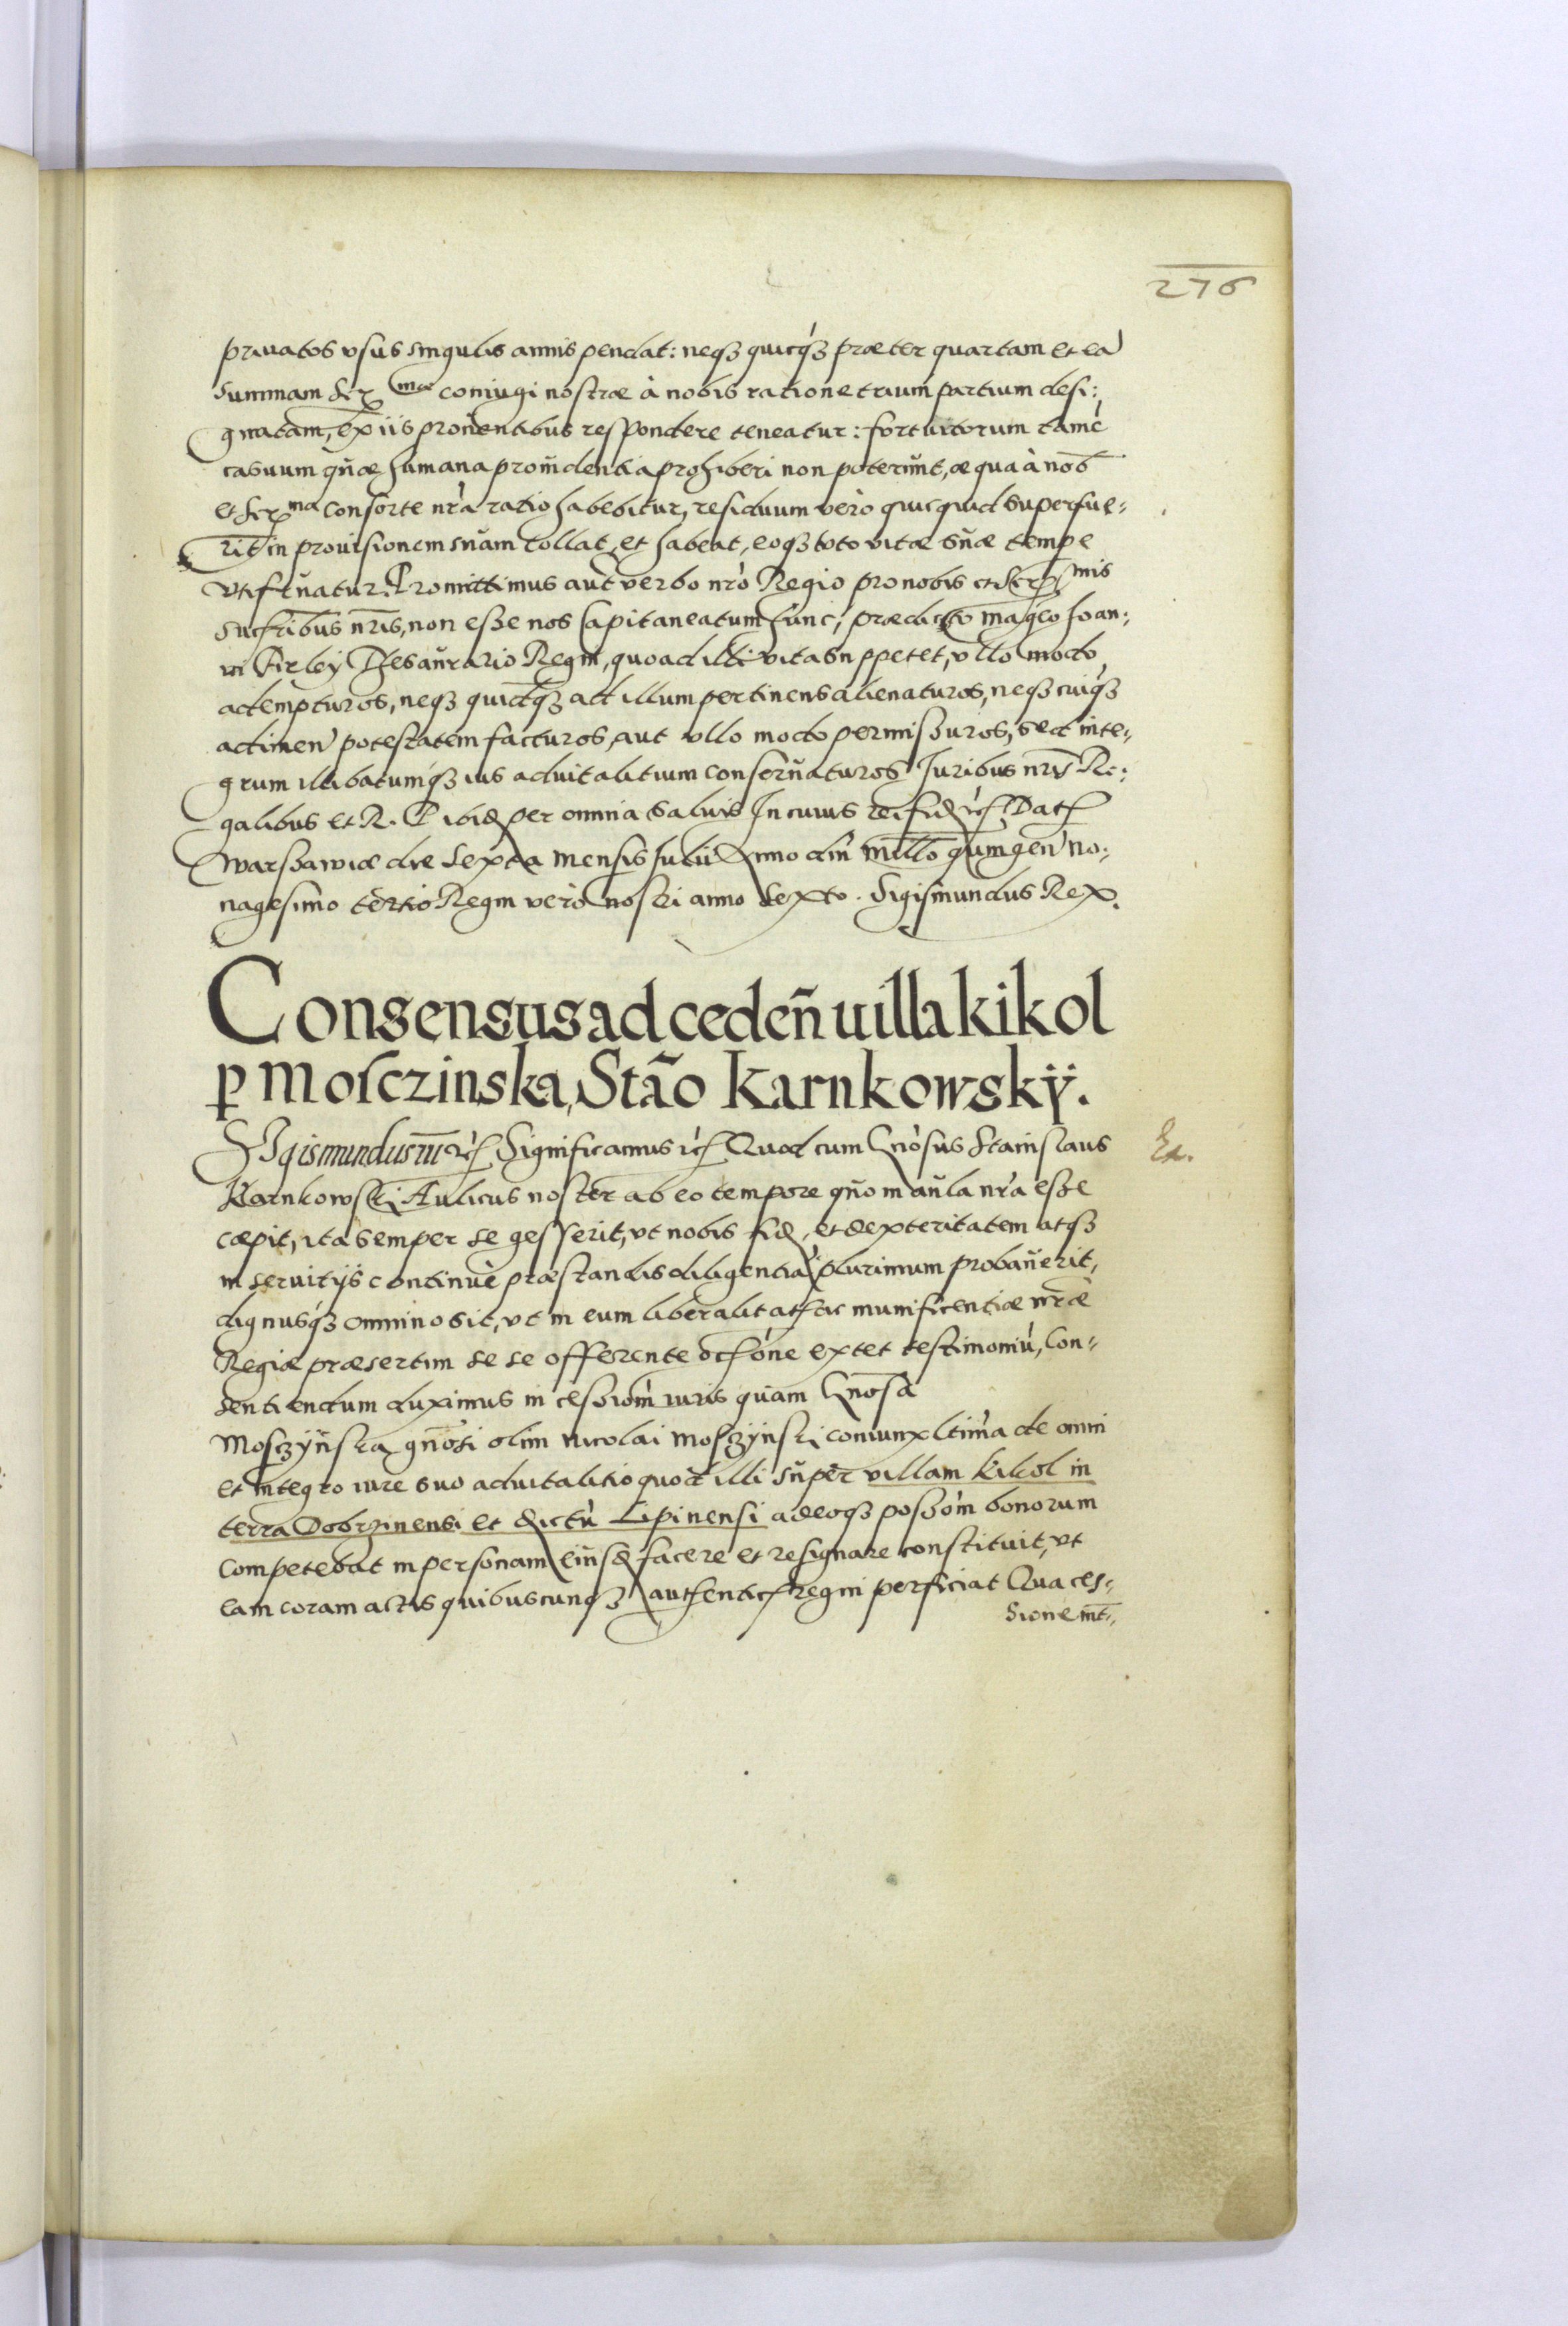 276
priuatos vsus singulis annis pendat: neqȝ quicqȝ præter quartam et eā
summam Ser mæ coniugi nostræ à nobis ratione trium partium desi:
gnatam, ex iis prouentibus respondere teneatur: fortuitorum tamē
casuum quæ humana prouidentia prohiberi non poterunt, æqua à nob
et Ser ma consorte nrà ratio habebitur, residuum verò quicquid superfue-
rit in prouisionem suam tollat et habeat, eoqȝ toto vitæ suæ tempe
vtifruatur. Promittimus aut verbo nrò Regio pro nobis et Ser mis
Sucribus nris, non esse nos Capitaneatum hunc, prædicto magco Ioan:
ni Firley Thesaurario Regni, quoad illi vita suppetet, vllo modo
adempturos, neqȝ quicqȝ ad illum pertinens alienaturos, neqȝ cuiqȝ
adimen potestatem facturos, aut vllo modo permissuros, sed inte-
grum illibatumqȝ ius aduitalitium conseruaturos Iuribus nris Re:
galibus et R. P ibid per omnia saluis In cuius rei fid rc Dat
Warssawiæ die sexta mensis Iulii Anno dni millo quingen no:
nagesimo tertio Regni verò nostri anno sexto. Sigismundus Rex.
Consensus ad ceden̄ uilla kikol
p Mosczinska, Stāo Karnkowskÿ.
Sigismundus III rc Significamus rc Quod cum Gnòsus Stanislaus
Ex.
Karnkowski Aulicus noster ab eo tempore quo in aula nrà esse
cæpit, ita semper se gesserit, vt nobis fid, et dexteritatem atqȝ
in seruitijs continuè præstandis diligentià plurimum probauerit,
dignusqȝ omnino sit, vt in eum liberalitat ac munificentiæ nræ
Regiæ præsertim se se offerente occone extet testimoniù, Con-
sentiendum duximus in cessiom iuris quam Gnosa
Mosczÿnska gnosi olim Nicolai Mosczÿnski coniunx ltima de omni
et integro iure suo aduitalitio quod illi super villam Kikol in
terra Dobrzinensi et dictù Lipinensi adeoqȝ possom bonorum
competebat in personam eiusd facere et resignare constituit, vt
eam coram actis quibuscunqȝ authentic Regni perficiat Qua ces-
sione int-